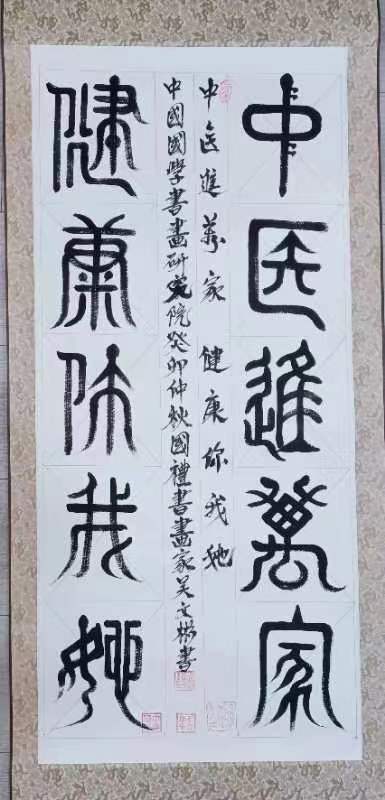 中医進萬家
中医進萬家 健康你我她
中國國學書畫研究院癸卯仲秋國禮書畫家吴文彬書
健康你我她